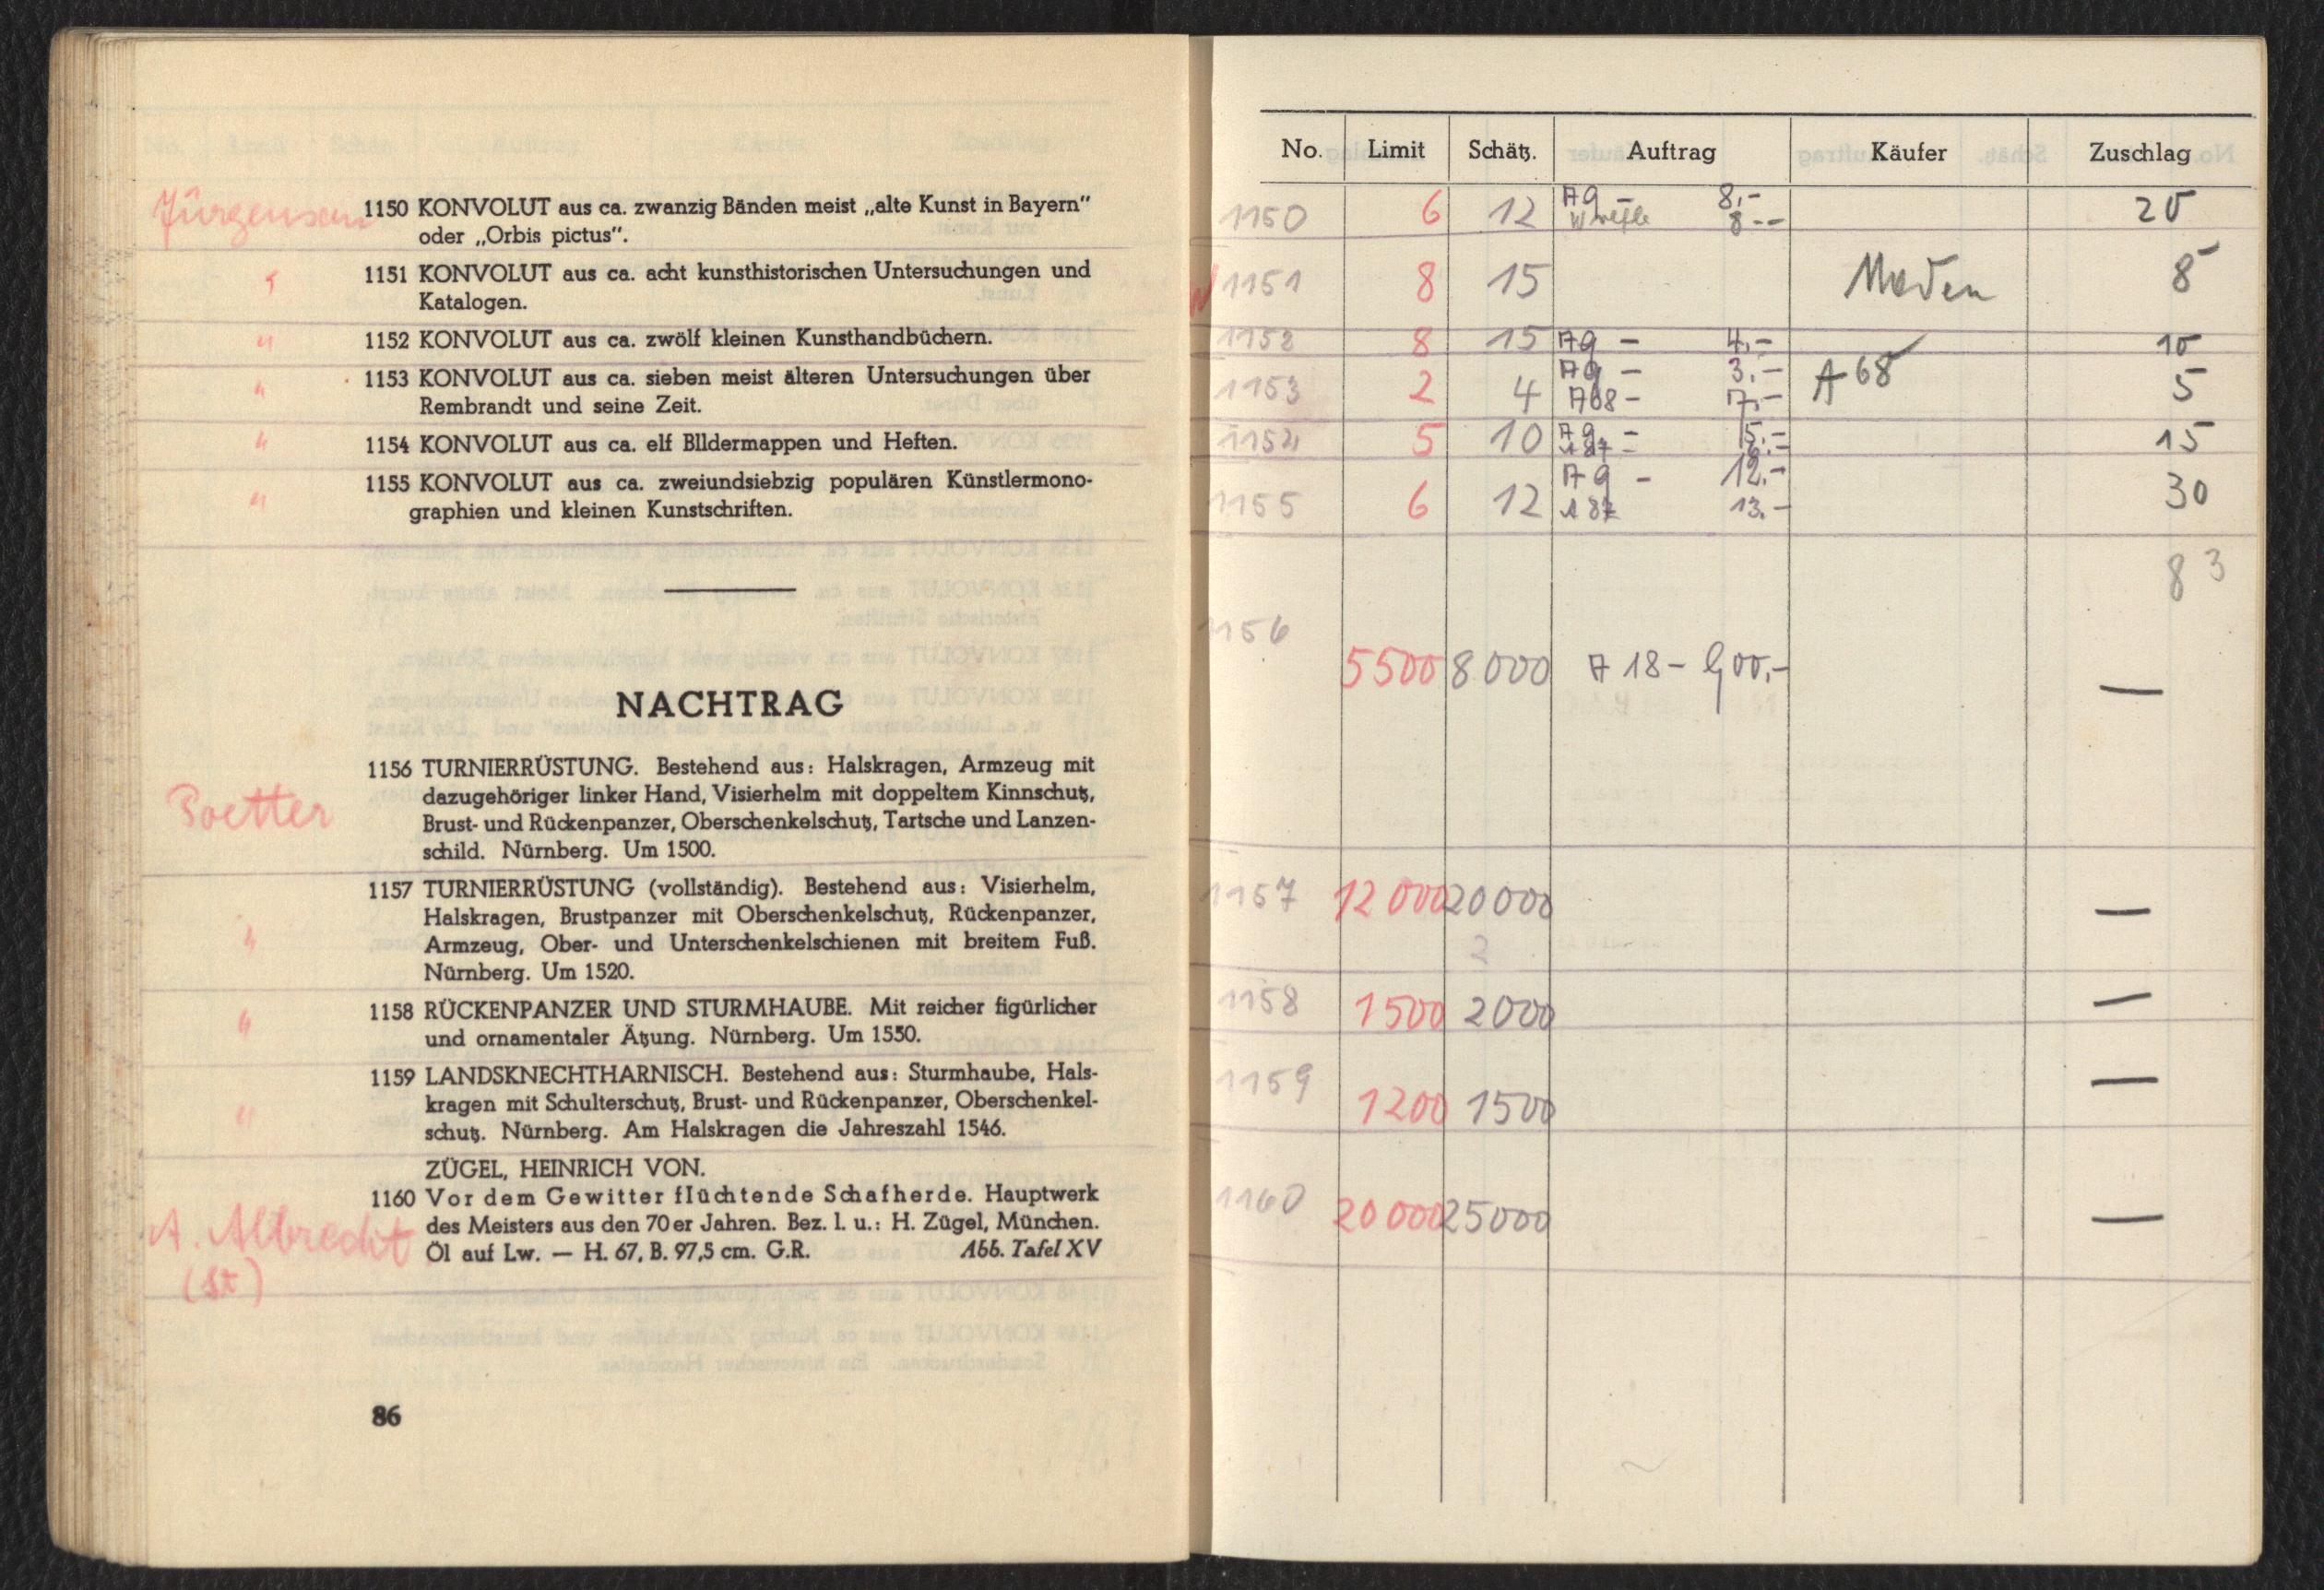 Jürgensen
1150 KONVOLUT aus ca. zwanzig Bänden meist „alte Kunst in Bayern"
oder „Orbis pictus".
1151 KONVOLUT aus ca. acht kunsthistorischen Untersuchungen und
Katalogen.
" 1152 KONVOLUT aus ca. zwölf kleinen Kunsthandbüchern.
" 1153 KONVOLUT aus ca. sieben meist älteren Untersuchungen über
Rembrandt und seine Zeit.
" 1154 KONVOLUT aus ca. elf Blldermappen und Heften.
" 1155 KONVOLUT aus ca. zweiundsiebzig populären Künstlermono-
graphien und kleinen Kunstschriften.
NACHTRAG
1156 TURNIERRÜSTUNG. Bestehend aus: Halskragen, Armzeug mit
dazugehöriger linker Hand, Visierhelm mit doppeltem Kinnschutz,
Poetter
Brust- und Rückenpanzer, Oberschenkelschutz, Tartsche und Lanzen-
schild. Nürnberg. Um 1500.
1157 TURNIERRÜSTUNG (vollständig). Bestehend aus: Visierhelm,
Halskragen, Brustpanzer mit Oberschenkelschutz, Rückenpanzer,
" Armzeug, Ober- und Unterschenkelschienen mit breitem Fuß.
Nürnberg. Um 1520.
" 1158 RÜCKENPANZER UND STURMHAUBE. Mit reicher figürlicher
und ornamentaler Ätzung. Nürnberg. Um 1550.
1159 LANDSKNECHTHARNISCH. Bestehend aus: Sturmhaube, Hals-
" kragen mit Schulterschutz, Brust- und Rückenpanzer, Oberschenkel-
schutz. Nürnberg. Am Halskragen die Jahreszahl 1546.
ZÜGEL, HEINRICH VON.
1160 Vor dem Gewitter flüchtende Schafherde. Hauptwerk
A. Albrecht des Meisters aus den 70er Jahren. Bez. l. u.: H. Zügel, München.
(St) Öl auf Lw. — H. 67, B. 97,5 cm. G.R. Abb. Tafel XV
86
No. Limit Schätz. Auftrag Käufer Zuschlag
1150 6 12 A9 – 8,– 20
8 --
1151 8 15 8
1152 8 15 A9 – 4,– 10
1153 2 4 A9 – 3,– A 68 5
A68 – 7,–
1154 5 10 A9. – 5.– 15
187 – 6.–
1155 6 12 A9 – 12.– 30
187 13.–
83
1156 5500 8000 A 18 – 900,– —
1157 12000 20000 —
2
1158 1500 2000 —
1159 1200 1500 —
1160 20000 25000 —